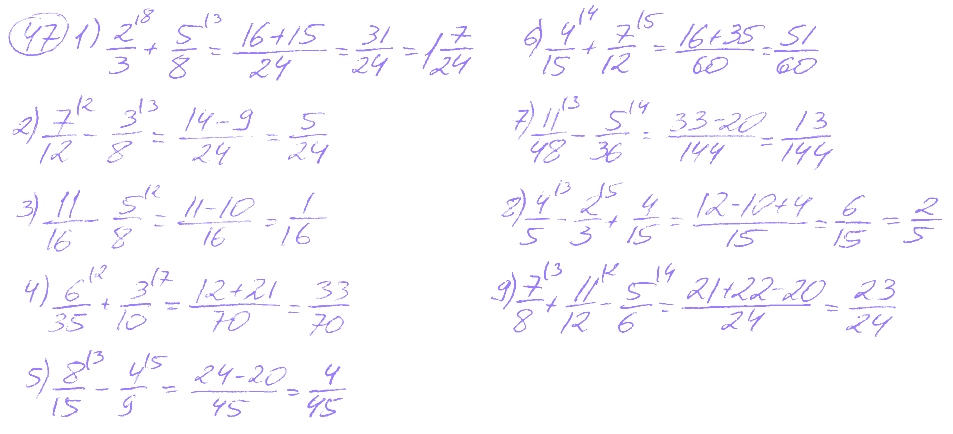 47 1) 2/3 \8 + 5/8 \3 = (16+15)/24 = 31/24 = 1 7/24
2) 7/12 \2 - 3/8 \3 = (14-9)/24 = 5/24
3) 11/16 - 5/8 \2 = (11-10)/16 = 1/16
4) 6/35 \2 + 3/10 \7 = (12+21)/70 = 33/70
5) 8/15 \3 - 4/9 \5 = (24-20)/45 = 4/45
6) 4/15 \4 + 7/12 \5 = (16+35)/60 = 51/60
7) 11/48 \3 - 5/36 \4 = (33-20)/144 = 13/144
8) 4/5 \3 - 2/3 \5 + 4/15 = (12-10+4)/15 = 6/15 = 2/5
9) 7/8 \3 + 11/12 \2 - 5/6 \4 = (21+22-20)/24 = 23/24